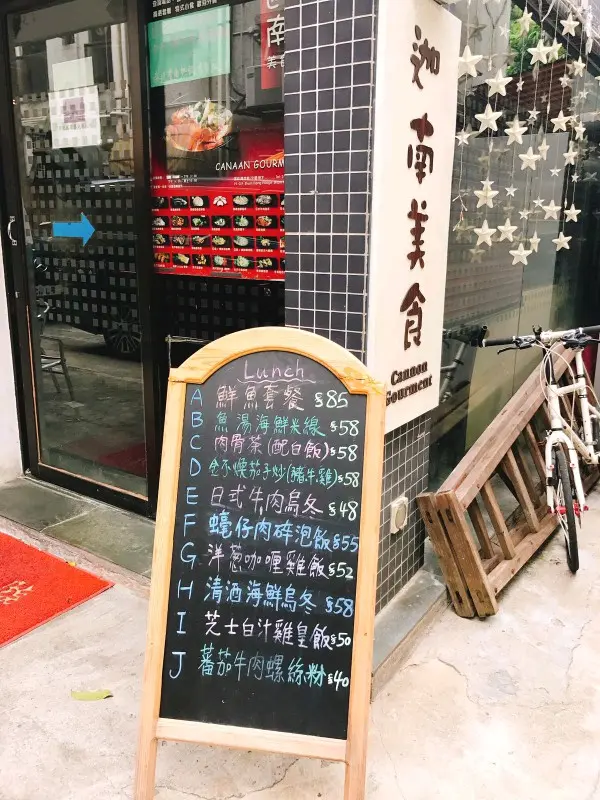 南
美食
CANAAN GOURM
迦南美食
Canaan
Gourmet
Lunch
A 鮮魚套餐 $85
B 魚湯海鮮米線 $58
C 肉骨茶(配白飯) $58
D 金不換茄子炒(豬牛雞) $58
E 日式牛肉烏冬 $48
F 蠔仔肉碎泡飯 $55
G 洋葱咖喱雞飯 $52
H 清酒海鮮烏冬 $58
I 芝士白汁雞皇飯 $50
J 蕃茄牛肉螺絲粉 $40